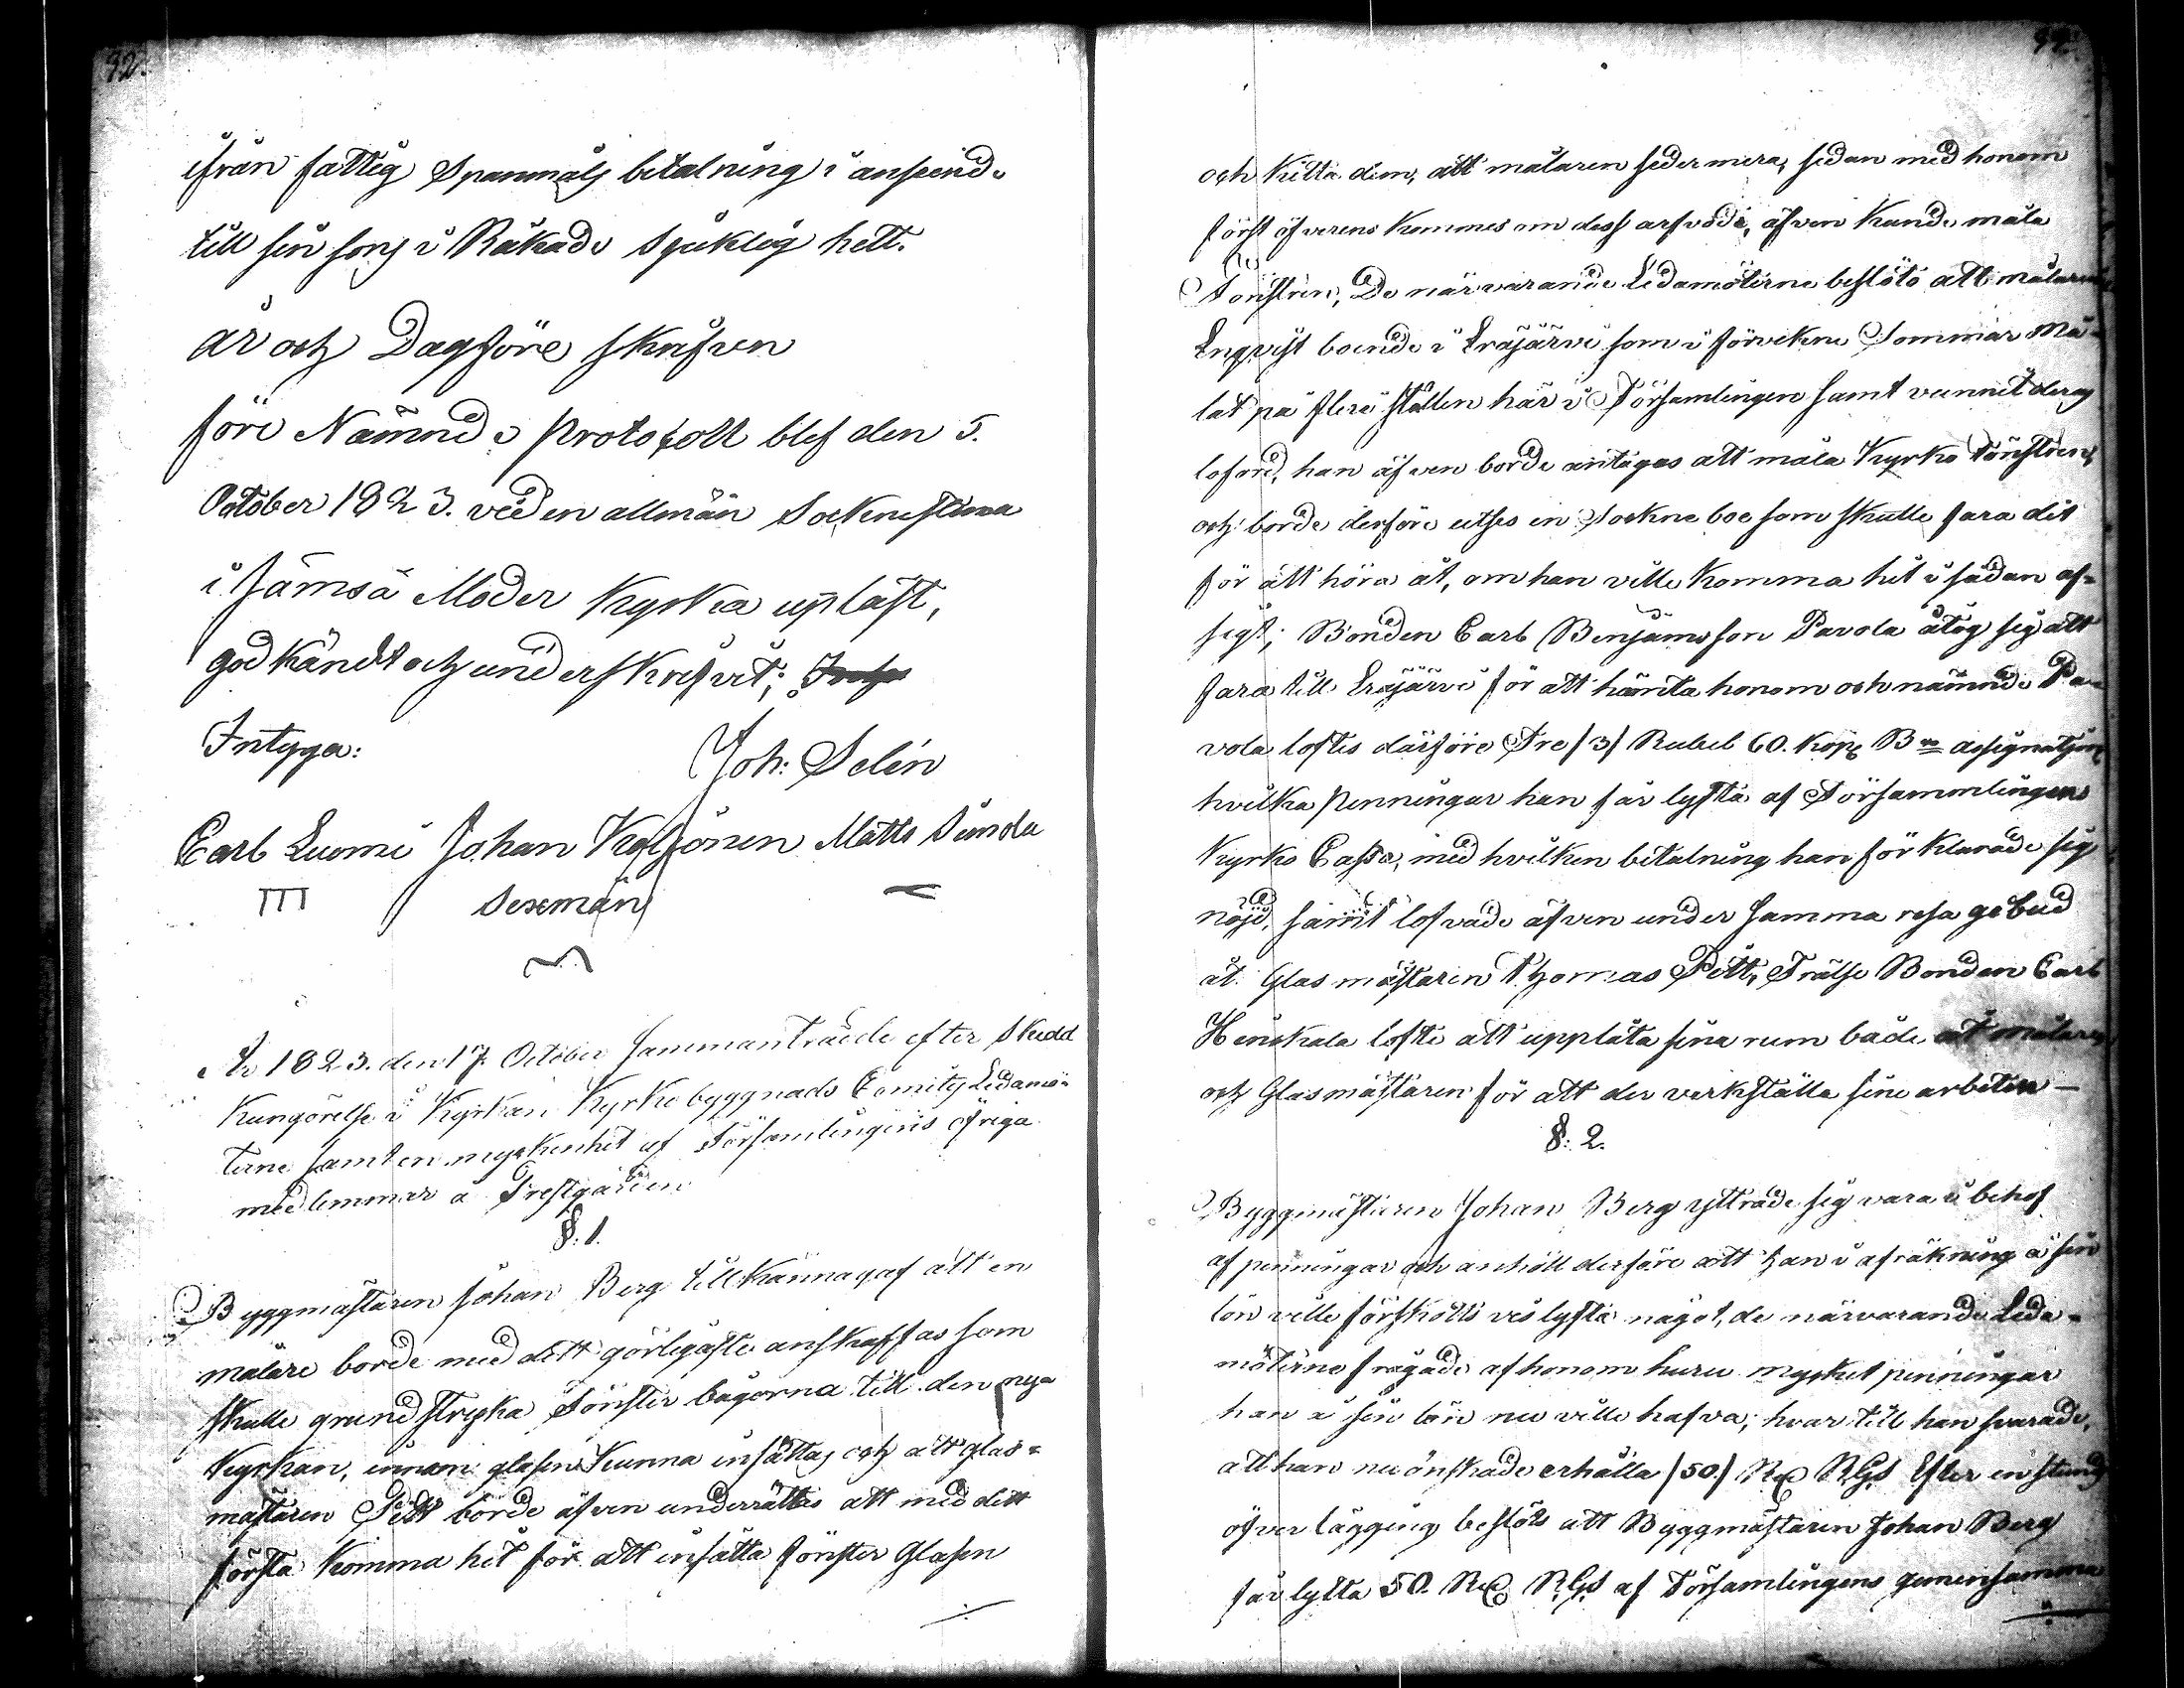 92.
ifrån fattig Spanmåls betalning i anseende
till sin sons i Råkade Sjuklig hett.
År och Dag före skrifven
före Nämnde protokoll blef den 5.
October 1823. vid en allmän Sockenstäma
i Jämsä Moder Kyrka upläst,
godkändt och underskrifvit;
Intyga:
Joh: Selin
Carl Luomi Johan Koljonen Matts Sunda
Sexmän
År 1823. den 17 October sammanträdde efter skedd
Kungörelse i Kyrkan Kyrkobyggnads Comitý Ledamö-
terne samt en myckenhet af Församlingens öfriga
medlemmar å Prestgården
§. 1.
Byggmästaren Johan Berg tillkännagaf att en
målare borde med dett görligaste anskaffas som
skulle grundstryka Fönster bågorna till den nya
Kyrkan, innan glasen kunna insättas och att glas-
mästaren Pett borde äfven underrättas att med dett
första komma hit för att insätta fönster Glasen
och kitta dem, att målaren sedermera, sedan med honom
först öfverens kommes om dess arfvode, äfven kunde måla
Fönstren, De närvarande Ledamöterne beslöto att målaren
Enqvist boende i Eräjärvi som i förvekne Sommar må-
lat på flere ställen här i Församlingen samt vunnit deraf
loford, han äfven borde antagas att måla Kyrko Fönstren,
och borde derföre utses en Sockne boe som skulle fara dit
för att höra åt, om han ville komma hit i sådan af-
sigt; Bonden Carl Benjamsson Pavola åtog sig att
fara till Eräjärvi för att hämta honom och nämnde Pa-
vola loftes därföre Tre /3/ Rubel 60. kop.
hvilka penningar han får lyfta af Försammlingens
Kyrko Cassa, med hvilken betalning han förklarade sig
nöjd, samt lofvade äfven under samma resa ge bud
åt Glasmästaren Thomas Pett, Frälse Bonden Carl
Heiskala lofte att upplåta sina rum både åt målaren
och Glasmästaren för att der verkställa sine arbeten —
§: 2.
Byggmästaren Johan Berg yttrade sig vara i behof
af penningar och anhöll derföre att han i afräkning å sin
lön ville förskotts vis lyfta något, de närvarande Leda-
möterne frågade af honom huru mycket penningar
han å sin lön nu ville hafva; hvartill han svarade,
att han nu önskade erhålla /50./ R:d R.G.s Efter en stunds
öfver läggning beslöts att Byggmästaren Johan Berg
får lyfta 50. R:d R.G.s af Församlingens gemensamma